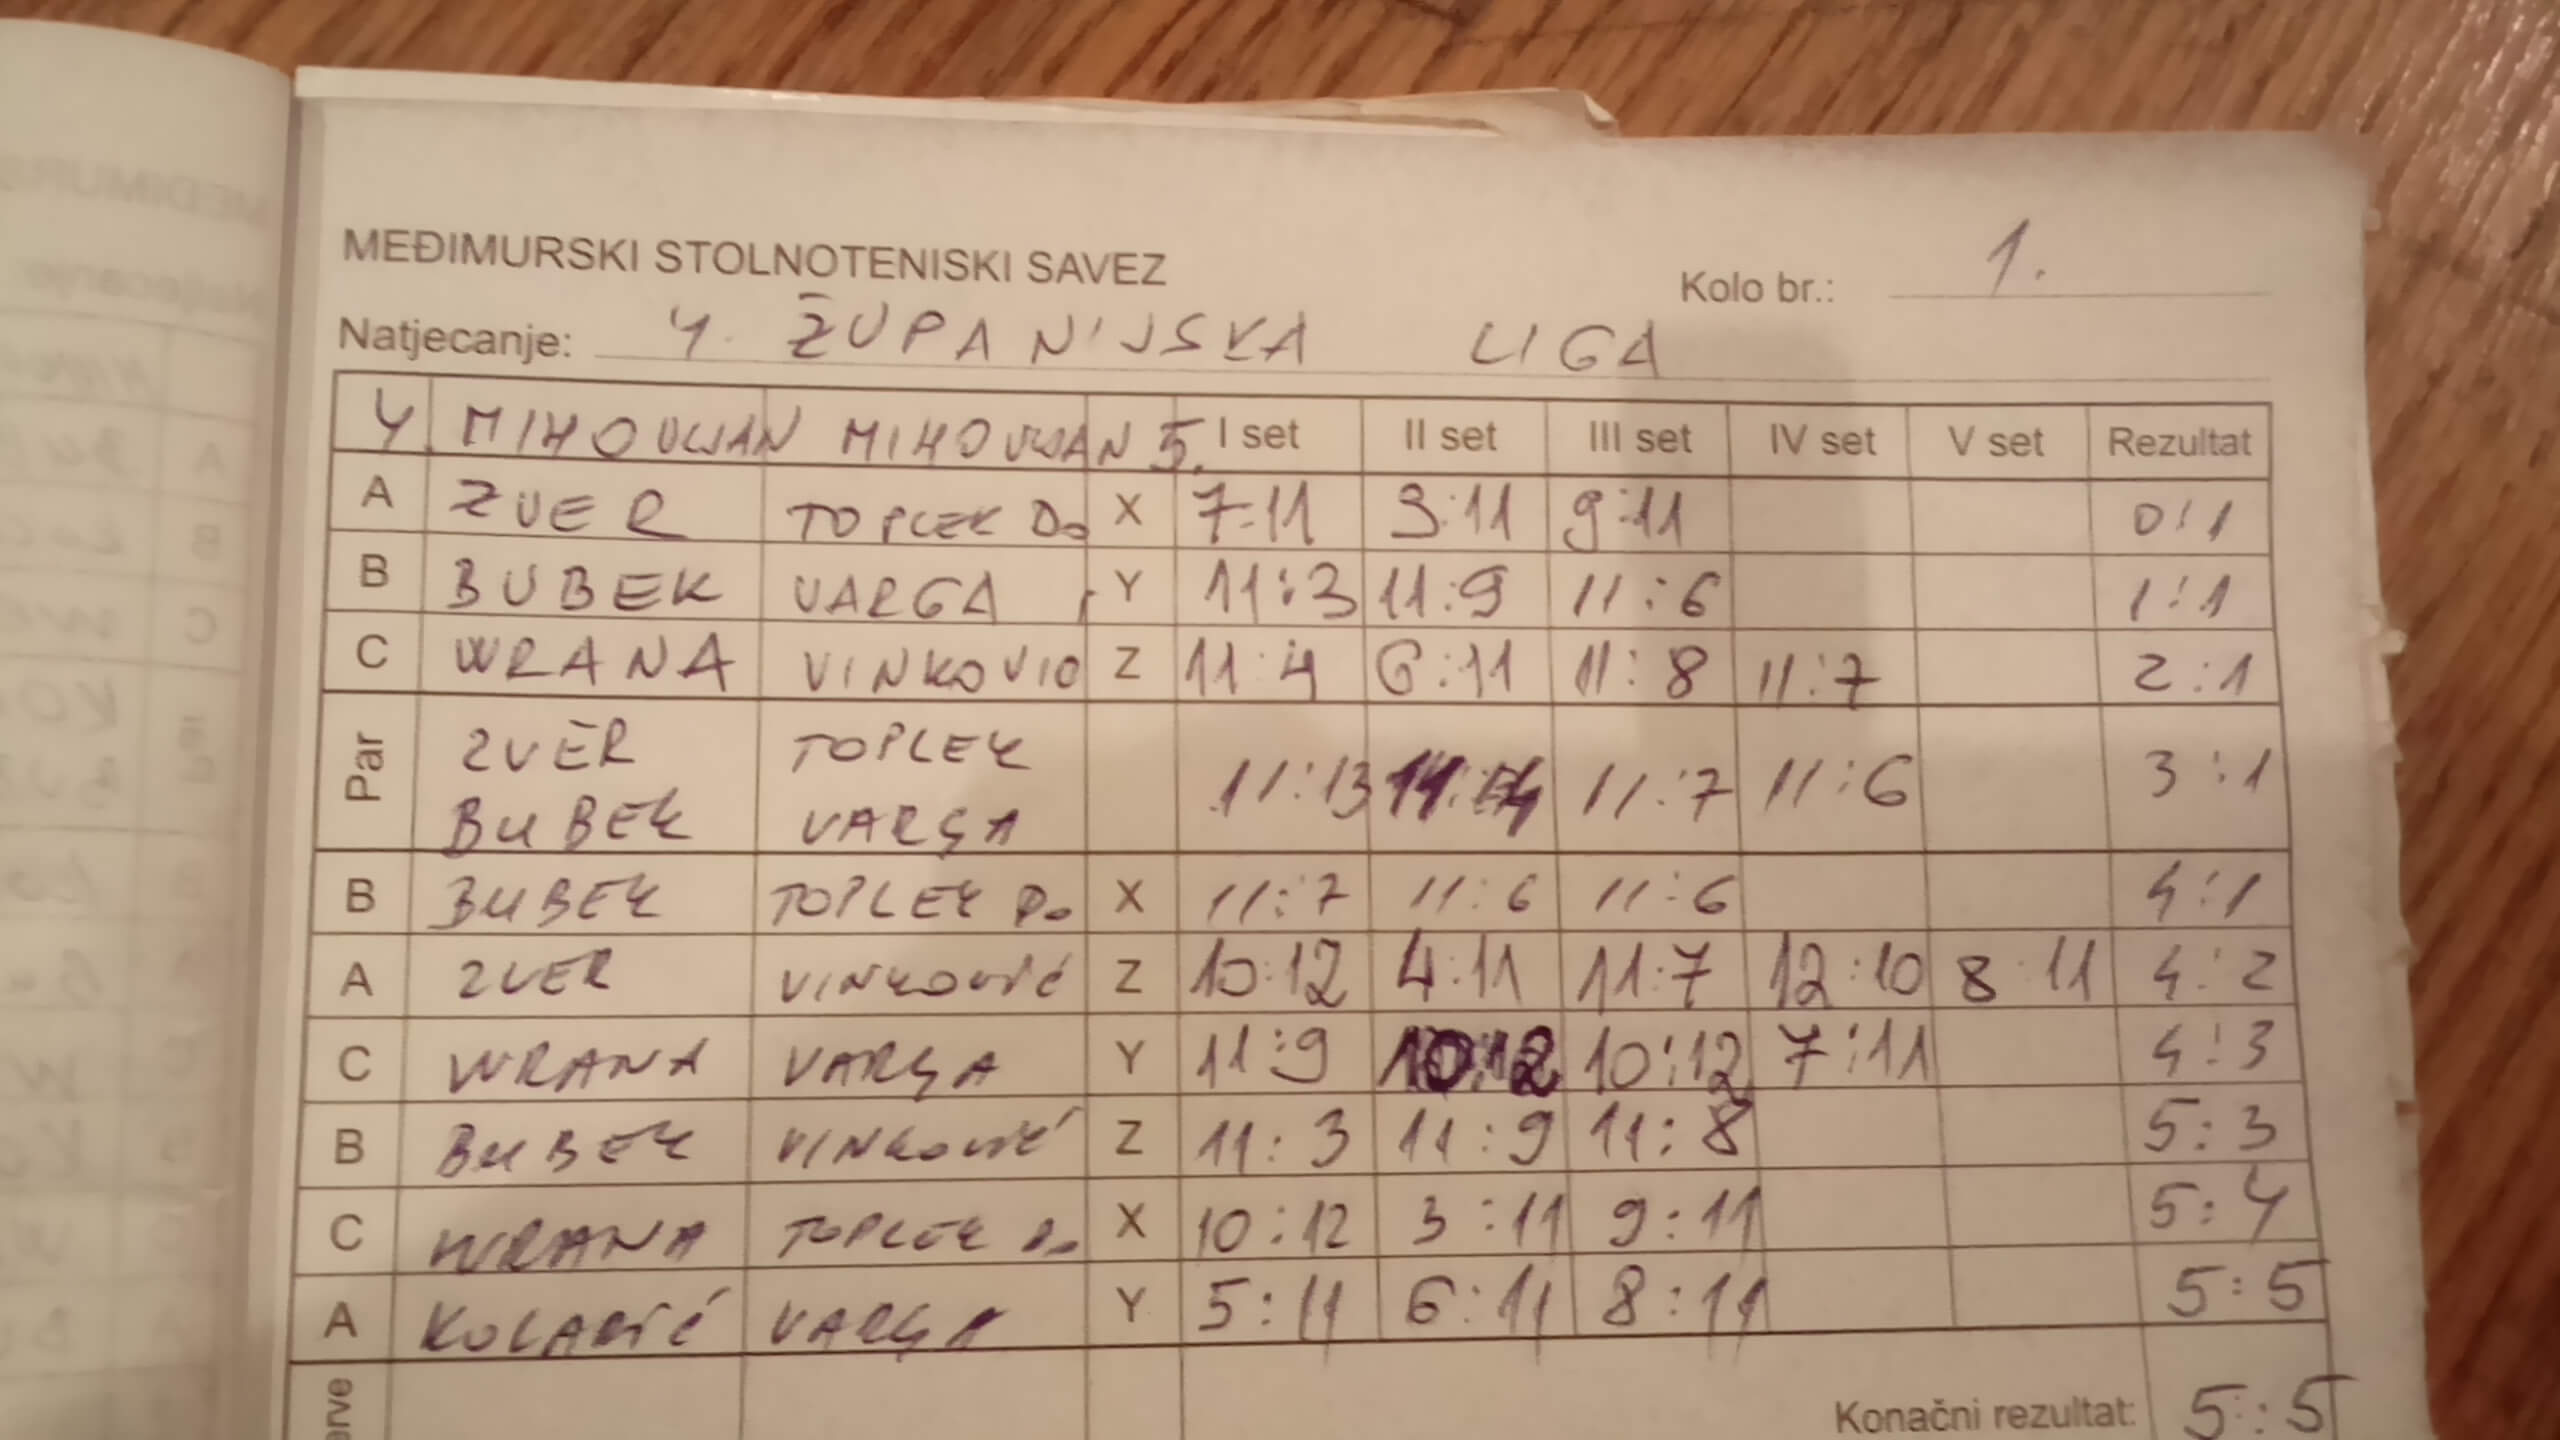 MEĐIMURSKI STOLNOTENISKI SAVEZ
Kolo br.: 1.
Natjecanje: 4. ŽUPANIJSKA LIGA
4. MIHOVLJAN MIHOVLJAN 5. I set II set III set IV set V set Rezultat
A ZVER TOPLEK Do X 7-11 3:11 9:11 0:1
B BUBEK VARGA Y 11:3 11:9 11:6 1:1
C WRANA VINKOVIĆ Z 11:4 6:11 11:8 11:7 2:1
Par ZVER TOPLEK
BUBEK VARGA 11:13 11:7 11:6 3:1
B BUBEK TOPLEK Do X 11:7 11:6 11:6 4:1
A ZVER VINKOVIĆ Z 10:12 4:11 11:7 12:10 8:11 4:2
C WRANA VARGA Y 11:9 10:12 10:12 7:11 4:3
B BUBEK VINKOVIĆ Z 11:3 11:9 11:8 5:3
C WRANA TOPLEK Do X 10:12 3:11 9:11 5:4
A KOLARIĆ VARGA Y 5:11 6:11 8:11 5:5
Konačni rezultat: 5:5